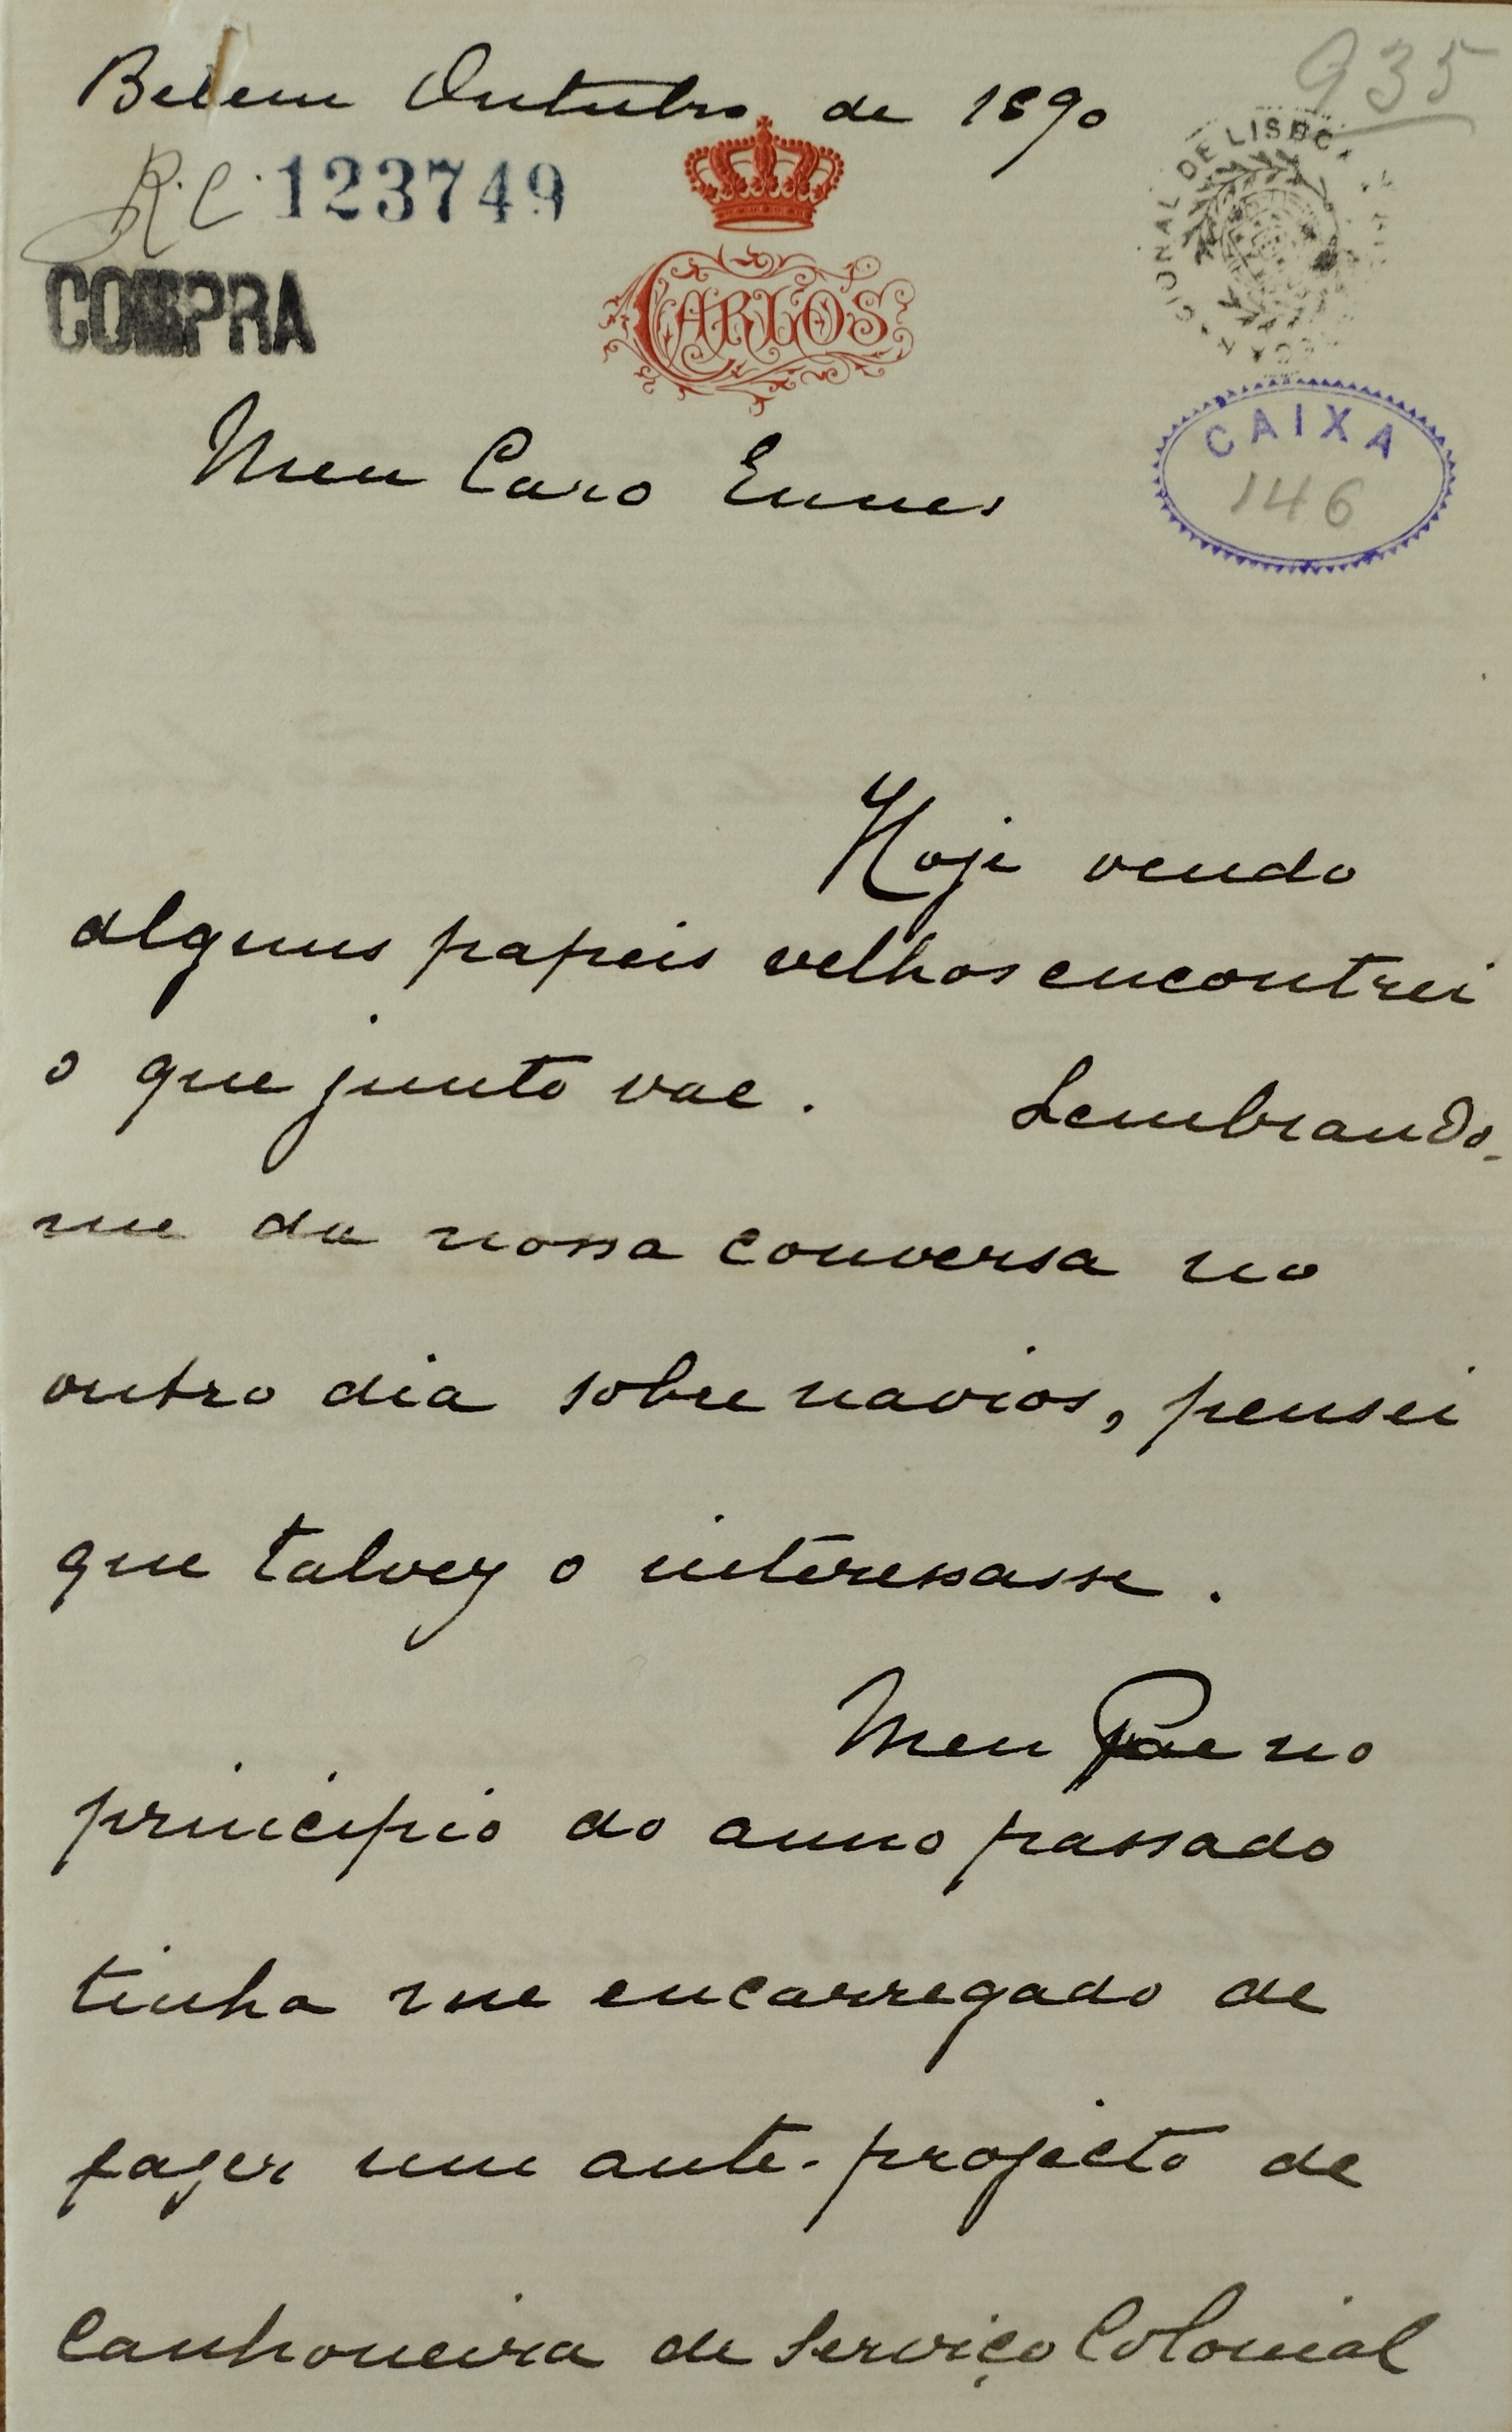 Belem Outubro de 1890
935
R.C. 123749
COMPRA
CARLOS
CIONAL DE LISBOA
CAIXA
146
Meu Caro Ennes
Hoje vendo
alguns papeis velhos encontrei
o que junto vae. Lembrando-
me da nossa conversa no
outro dia sobre navios, pensei
que talvez o interessasse.
Meu Pae no
principio do anno passado
tinha me encarregado de
fazer um ante-projecto de
Canhoneira de Serviço Colonial